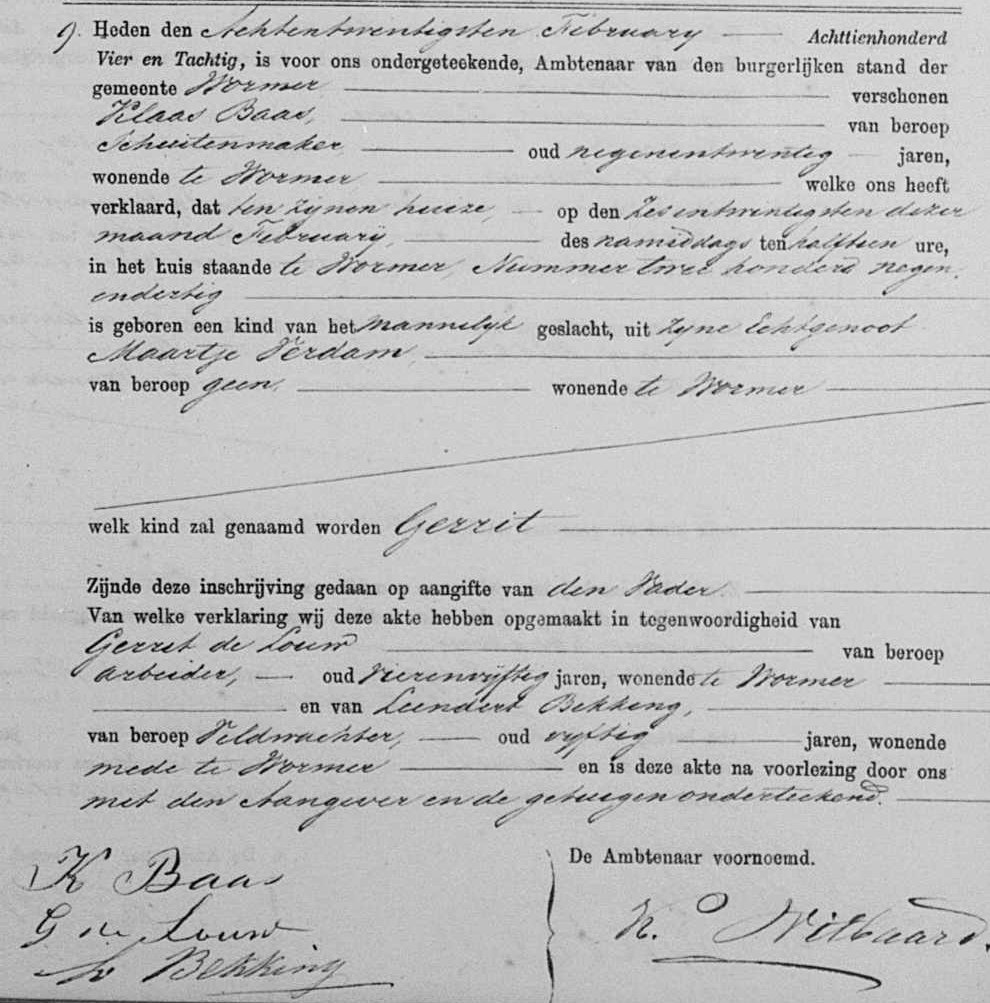 9. Heden den Achtentwintigsten February Achttienhonderd
Vier en Tachtig, is voor ons ondergeteekende, Ambtenaar van den burgerlijken stand der
gemeente Wormer verschenen
Klaas Baas, van beroep
Schuitenmaker oud negenentwintig jaren,
wonende te Wormer welke ons heeft
verklaard, dat ten zijnen huize, op den Zesentwintigsten dezer
maand Februarij, des namiddags ten halftien ure,
in het huis staande te Wormer, Nummer twee honderd negen
endertig
is geboren een kind van het mannelijk geslacht, uit zijne Echtgenoot
Maartje Verdam,
van beroep geen, wonende te Wormer
welk kind zal genaamd worden Gerrit
Zijnde deze inschrijving gedaan op aangifte van den Vader.
Van welke verklaring wij deze akte hebben opgemaakt in tegenwoordigheid van
Gerrit de Louw van beroep
arbeider, oud vierenvijftig jaren, wonende te Wormer
en van Leendert Bekking,
van beroep Veldwachter, oud vijftig jaren, wonende
mede te Wormer en is deze akte na voorlezing door ons
met den Aangever en de getuigen onderteekend.
De Ambtenaar voornoemd.
K Baas
G de Louw
Bekking
K.